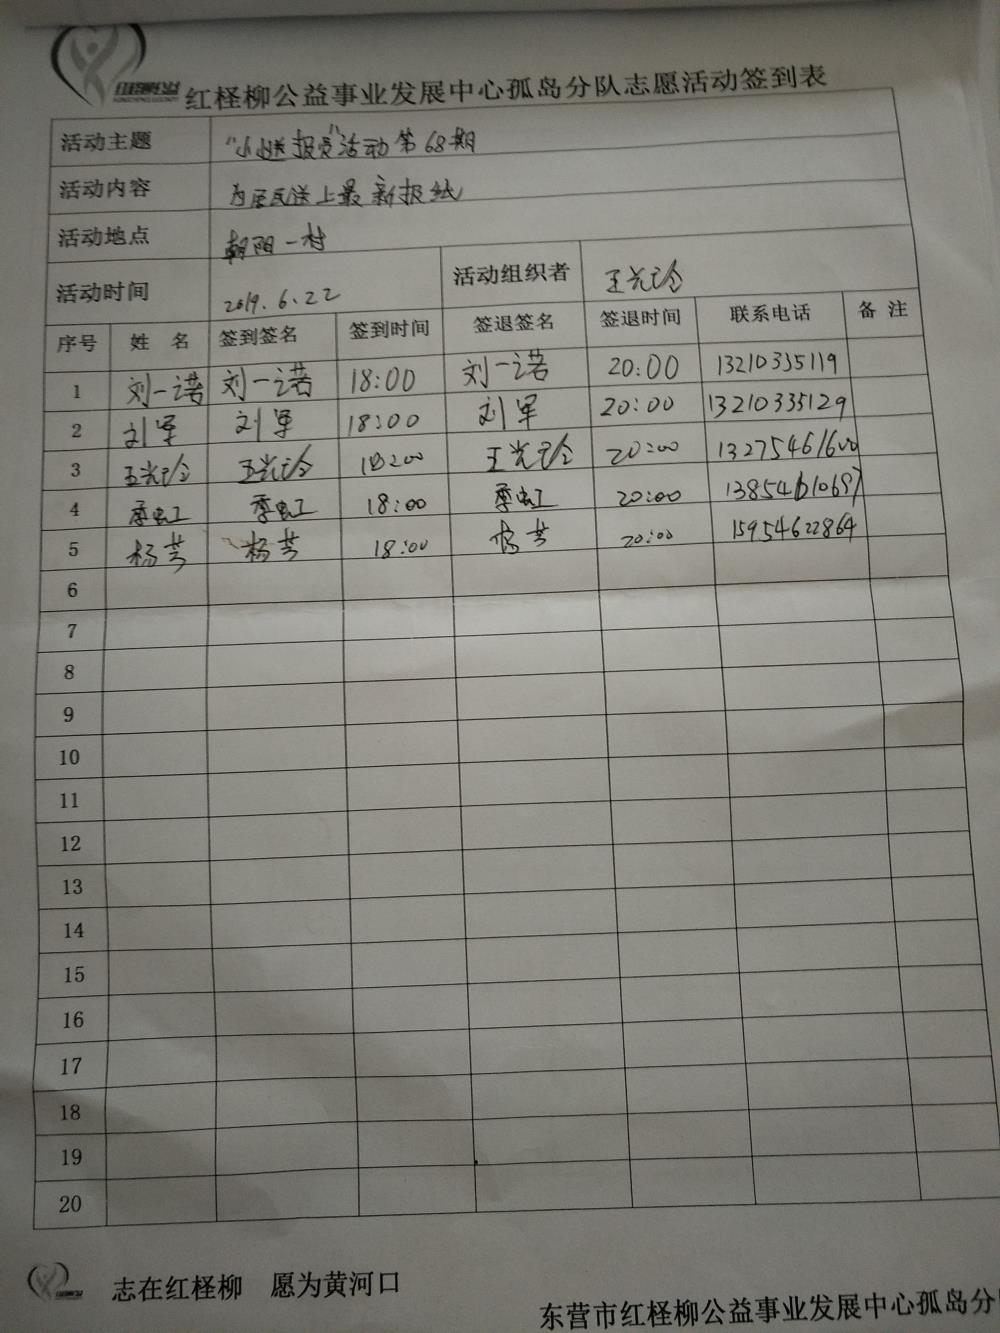 红柽柳公益事业发展中心孤岛分队志愿活动签到表
活动主题 "小小送报员"活动第68期
活动内容 为居民送上最新报纸
活动地点 朝阳一村
活动时间 2019.6.22 活动组织者 王光玲
序号 姓 名 签到签名 签到时间 签退签名 签退时间 联系电话 备 注
1 刘一诺 刘一诺 18:00 刘一诺 20:00 13210335119
2 刘军 刘军 18:00 刘军 20:00 13210335129
3 王光玲 王光玲 王光玲 20:00
4 季虹 季虹 18:00 季虹 20:00
5 杨芳 杨芳 18:00 杨芳 20:00 15954622864
6
7
8
9
10
11
12
13
14
15
16
17
18
19
20
志在红柽柳 愿为黄河口
东营市红柽柳公益事业发展中心孤岛分